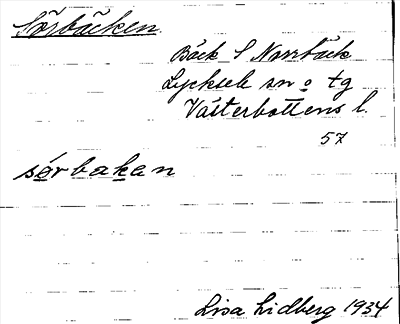 Sörbäcken.
Bäck S Norrbäck
Lycksele sn o tg
Västerbottens l.
57
sörbakan
Lisa Lidberg 1934